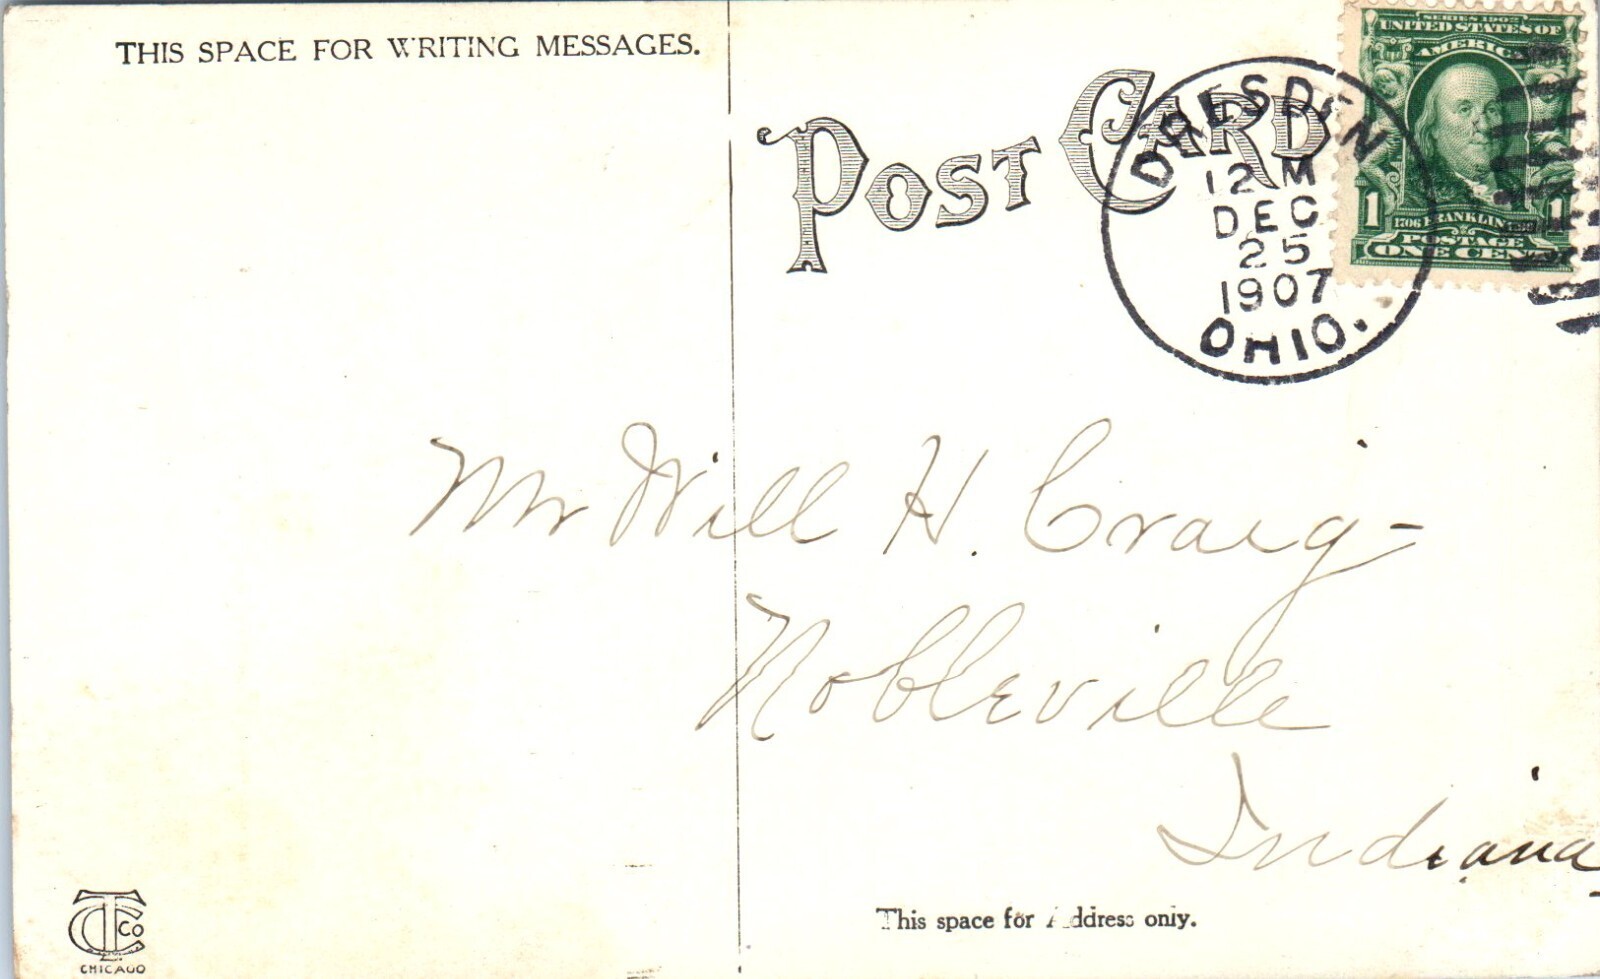 THIS SPACE FOR WRITING MESSAGES.
POST CARD
DRESDEN
12 M
DEC
25
1907
OHIO.
SERIES 1902
UNITED STATES OF
AMERICA
1 1706 FRANKLIN 1
POSTAGE
ONE CENT
Mr Will H. Craig-
Nobleville
Indiana
This space for Address only.
CTCo
CHICAGO